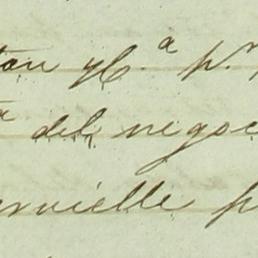 tan y C.ª p.r
del negoc
ervielle p